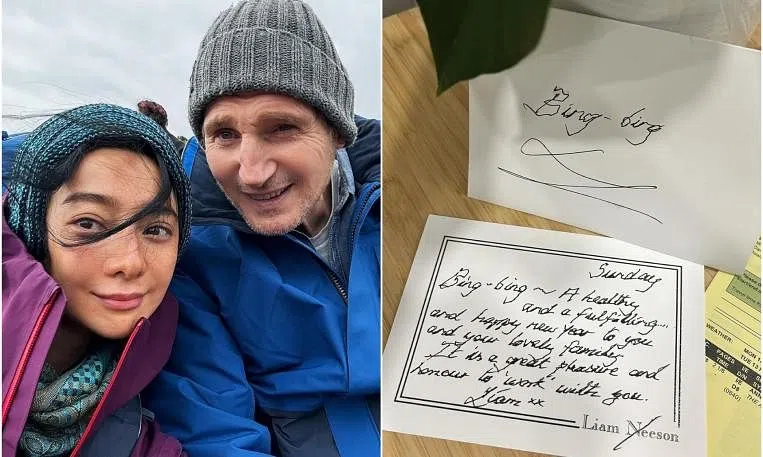 Bing-bing
Sunday
Bing-bing ~ A healthy
and a fulfilling...
and happy new year to you
and your lovely family
It is a great pleasure and
honour to 'work' with you.
Liam xx
Liam Neeson
WEATHER: MON 1
TUE 13
PAGES
D8
(0640)